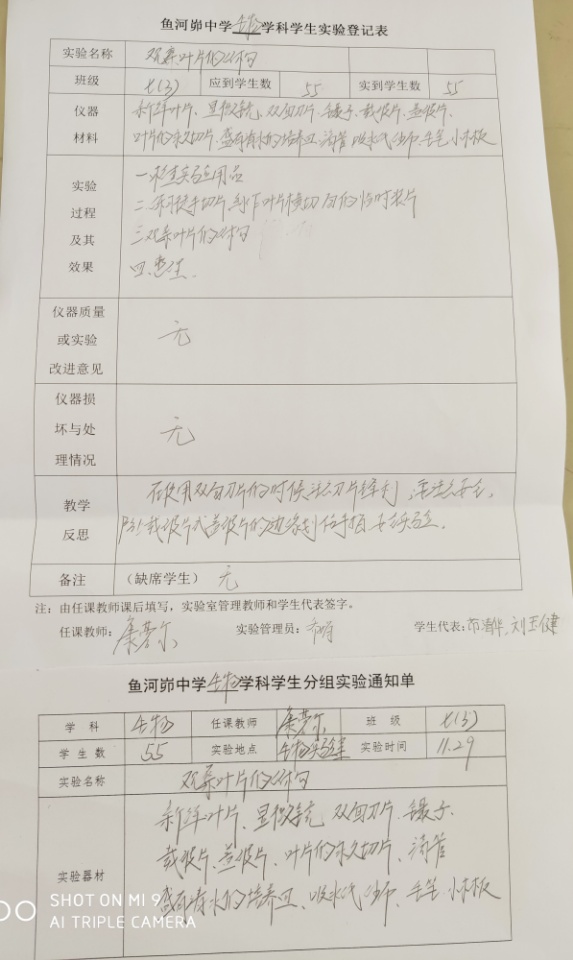 鱼河峁中学生物学科学生实验登记表
实验名称 观察叶片的结构
班级 七(3) 应到学生数 55 实到学生数 55
仪器 新鲜叶片、显微镜、双面刀片、镊子、载玻片、盖玻片、
材料 叶片的永久切片、盛有清水的培养皿、滴管、吸水纸、纱布、毛笔、小木板
实验 一、检查实验用品
过程 二、练习徒手切片,制作叶片横切面的临时装片
及其 三、观察叶片的结构
效果 四、
仪器质量
或实验 无
改进意见
仪器损
坏与处 无
理情况
教学 在使用双面刀片的时候注意刀片锋利,注意安全,
反思 防止载玻片或盖玻片的边缘划伤手指
备注 (缺席学生) 无
注:由任课教师课后填写,实验室管理教师和学生代表签字。
任课教师: 实验管理员: 学生代表: 刘玉健
鱼河峁中学生物学科学生分组实验通知单
学 科 生物 任课教师 班 级 七(3)
学 生 数 55 实验地点 生物实验室 实验时间 11.29
实验名称 观察叶片的结构
新鲜叶片、显微镜、双面刀片、镊子、
载玻片、盖玻片、叶片的永久切片、滴管
实验器材 盛有清水的培养皿、吸水纸、纱布、毛笔、小木板
SHOT ON MI 9
AI TRIPLE CAMERA